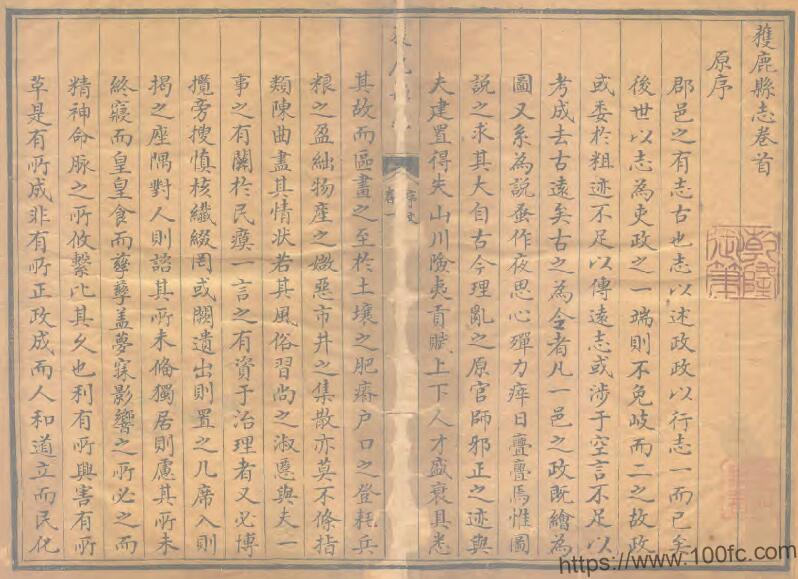 獲鹿縣志卷首
原序
郡邑之有志古也志以述政政以行志一而已矣
後世以志為吏政之一端則不免歧而二之故政
或委於粗迹不足以傳遠志或涉于空言不足以
考成去古遠矣古之為令者凡一邑之政既繪為
圖又系為說蚤作夜思心殫力瘁日亹亹焉惟圖
說之求其大自古今理亂之原官師邪正之迹與
夫建置得失山川險夷貢賦上下人才盛衰具悉
其故而區畫之至於土壤之肥瘠户口之登耗兵
粮之盈絀物產之媺惡市井之集散亦莫不條指
類陳曲盡其情状若其風俗習尚之淑慝與夫一
事之有關於民瘼一言之有資于治理者又必博
攬旁搜慎核纖綴罔或闕遺出則置之几席入則
揭之座隅對人則諮其所未備獨居則慮其所未
終寢而皇皇食而孳孳盖夢寐影響之所必之而
精神命脉之所攸繫比其久也利有所興害有所
草是有所成非有所正政成而人和道立而民化
乾隆
https://www.100fc.com